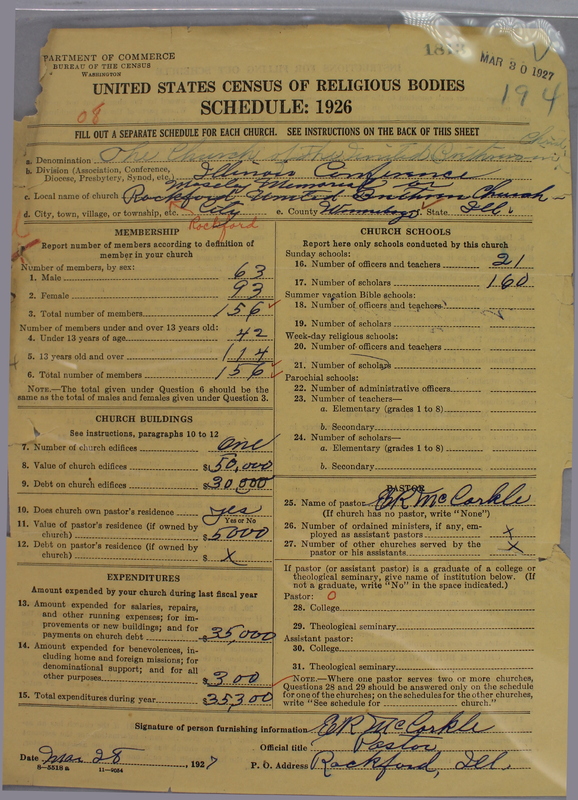 DEPARTMENT OF COMMERCE
BUREAU OF THE CENSUS
WASHINGTON
MAR 30 1927
194
UNITED STATES CENSUS OF RELIGIOUS BODIES
SCHEDULE: 1926
08
FILL OUT A SEPARATE SCHEDULE FOR EACH CHURCH. SEE INSTRUCTIONS ON THE BACK OF THIS SHEET
a. Denomination The Church of the United Brethren in Christ
b. Division (Association, Conference, Diocese, Presbytery, Synod, etc.) Illinois Conference
Mosely Memorial or
c. Local name of church Rockford United Brethren Church
d. City, town, village, or township, etc. City e. County Winnebago State Ill.
Rockford
MEMBERSHIP
Report number of members according to definition of member in your church
Number of members, by sex:
1. Male 63
2. Female 93
3. Total number of members 156
Number of members under and over 13 years old:
4. Under 13 years of age 42
5. 13 years old and over 114
6. Total number of members 156
NOTE.—The total given under Question 6 should be the same as the total of males and females given under Question 3.
CHURCH BUILDINGS
See instructions, paragraphs 10 to 12
7. Number of church edifices one
8. Value of church edifices $50,000
9. Debt on church edifices $30,000
10. Does church own pastor's residence? yes
Yes or No
11. Value of pastor's residence (if owned by church) $5000
12. Debt on pastor's residence (if owned by church) $ x
EXPENDITURES
Amount expended by your church during last fiscal year
13. Amount expended for salaries, repairs, and other running expenses; for improvements or new buildings; and for payments on church debt $35,000
14. Amount expended for benevolences, including home and foreign missions; for denominational support; and for all other purposes $300
15. Total expenditures during year $35300
CHURCH SCHOOLS
Report here only schools conducted by this church
Sunday schools:
16. Number of officers and teachers 21
17. Number of scholars 160
Summer vacation Bible schools:
18. Number of officers and teachers
19. Number of scholars
Week-day religious schools:
20. Number of officers and teachers
21. Number of scholars
Parochial schools:
22. Number of administrative officers
23. Number of teachers—
a. Elementary (grades 1 to 8)
b. Secondary
24. Number of scholars—
a. Elementary (grades 1 to 8)
b. Secondary
PASTOR
25. Name of pastor ER McCorkle
(If church has no pastor, write "None")
26. Number of ordained ministers, if any, employed as assistant pastors x
27. Number of other churches served by the pastor or his assistants x
If pastor (or assistant pastor) is a graduate of a college or theological seminary, give name of institution below. (If not a graduate, write "No" in the space indicated.)
Pastor: 0
28. College
29. Theological seminary
Assistant pastor:
30. College
31. Theological seminary
NOTE.—Where one pastor serves two or more churches, Questions 28 and 29 should be answered only on the schedule for one of the churches; on the schedules for the other churches, write "See schedule for church."
Signature of person furnishing information ER McCorkle
Official title Pastor
Date Mar 28, 1927 P. O. Address Rockford, Ill.
8—5518a 11—9084